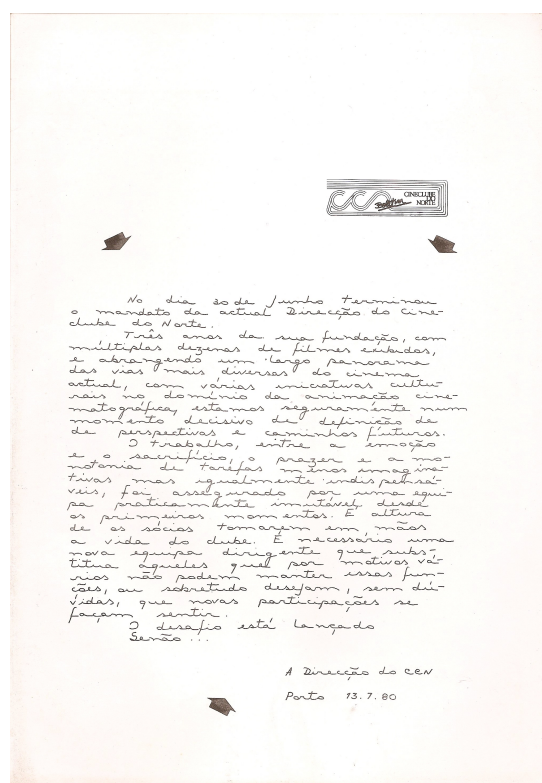 CINECLUBE
DO
NORTE
No dia 30 de Junho terminou
o mandato da actual Direcção do Cine-
clube do Norte.
Três anos da sua fundação, com
múltiplas dezenas de filmes exibidos,
e abrangendo um largo panorama
das vias mais diversas do cinema
actual, com várias iniciativas cultu-
rais no domínio da animação cine-
matográfica, estamos seguramente num
momento decisivo de definição de
de perspectivas e caminhos futuros.
O trabalho, entre a emoção
e o sacrifício, o prazer e a mo-
notonia de tarefas menos imagina-
tivas mas igualmente indispensá-
veis, foi assegurado por uma equi-
pa praticamente imutável desde
os primeiros momentos. É altura
de os sócios tomarem em mãos
a vida do clube. É necessário uma
nova equipa dirigente que subs-
titua aqueles que por motivos vá-
rios não podem manter essas fun-
ções, ou sobretudo desejam, sem dú-
vidas, que novas participações se
façam sentir.
O desafio está lançado
Senão ...
A Direcção do CCN
Porto 13.7.80